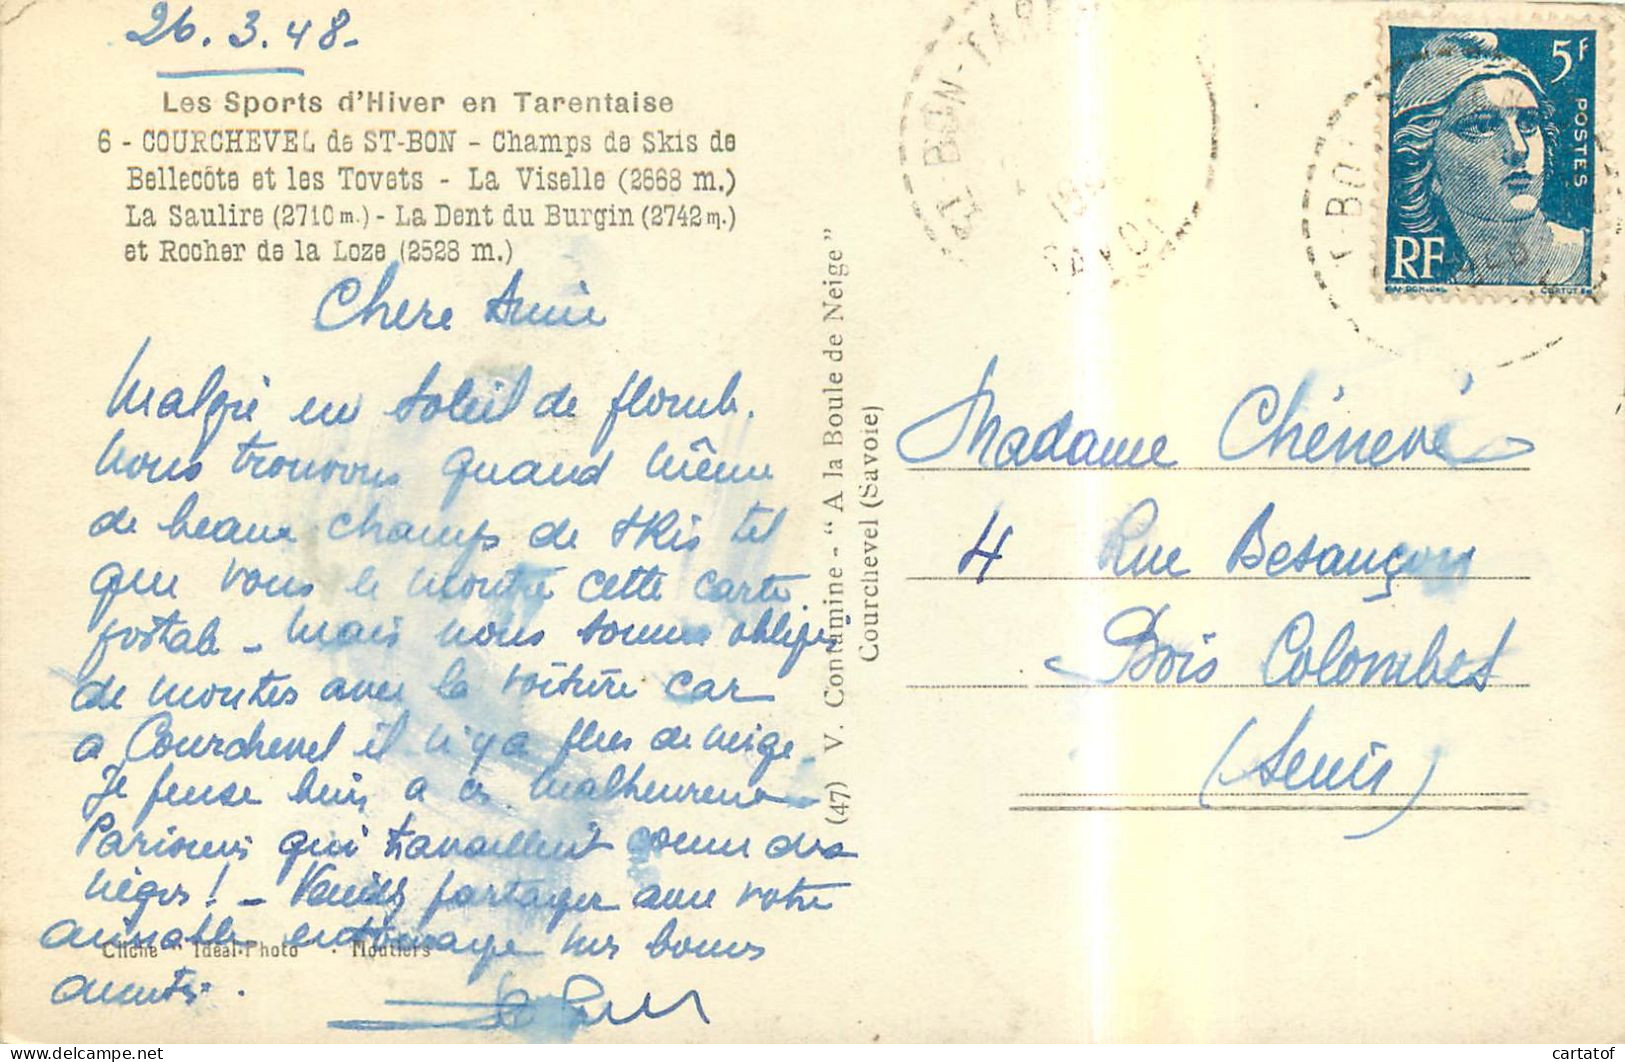 26.3.48-
Les Sports d'Hiver en Tarentaise
6 - COURCHEVEL de ST-BON - Champs de Skis de
Bellecôte et les Tovets - La Viselle (2668 m.)
La Saulire (2710 m.) - La Dent du Burgin (2742 m.)
et Rocher de la Loze (2528 m.)
Chere Amie
Malgré un soleil de plomb.
nous trouvons quand même
de beaux champs de skis tel
que vous le montre cette carte
postale - Mais nous sommes obligés
de montes avec la voiture car
a Courchevel il n'y a plus de neige
Je pense bien a ces malheureux
Parisiens qui travaillent comme des
nègres ! - Veuillez partager avec votre
aimable entourage mes bonnes
amitiés.
Cliché "Idéal-Photo" - Moutiers
(47) V. Contamine - " A la Boule de Neige "
Courchevel (Savoie)
ST BON-TARE
SAVOIE
T-BON
5F
POSTES
RF
GANDON-DEL
CORTOT
Madame Chénevé
4 Rue Besançon
Bois Colombes
(Seine)
© cartatof